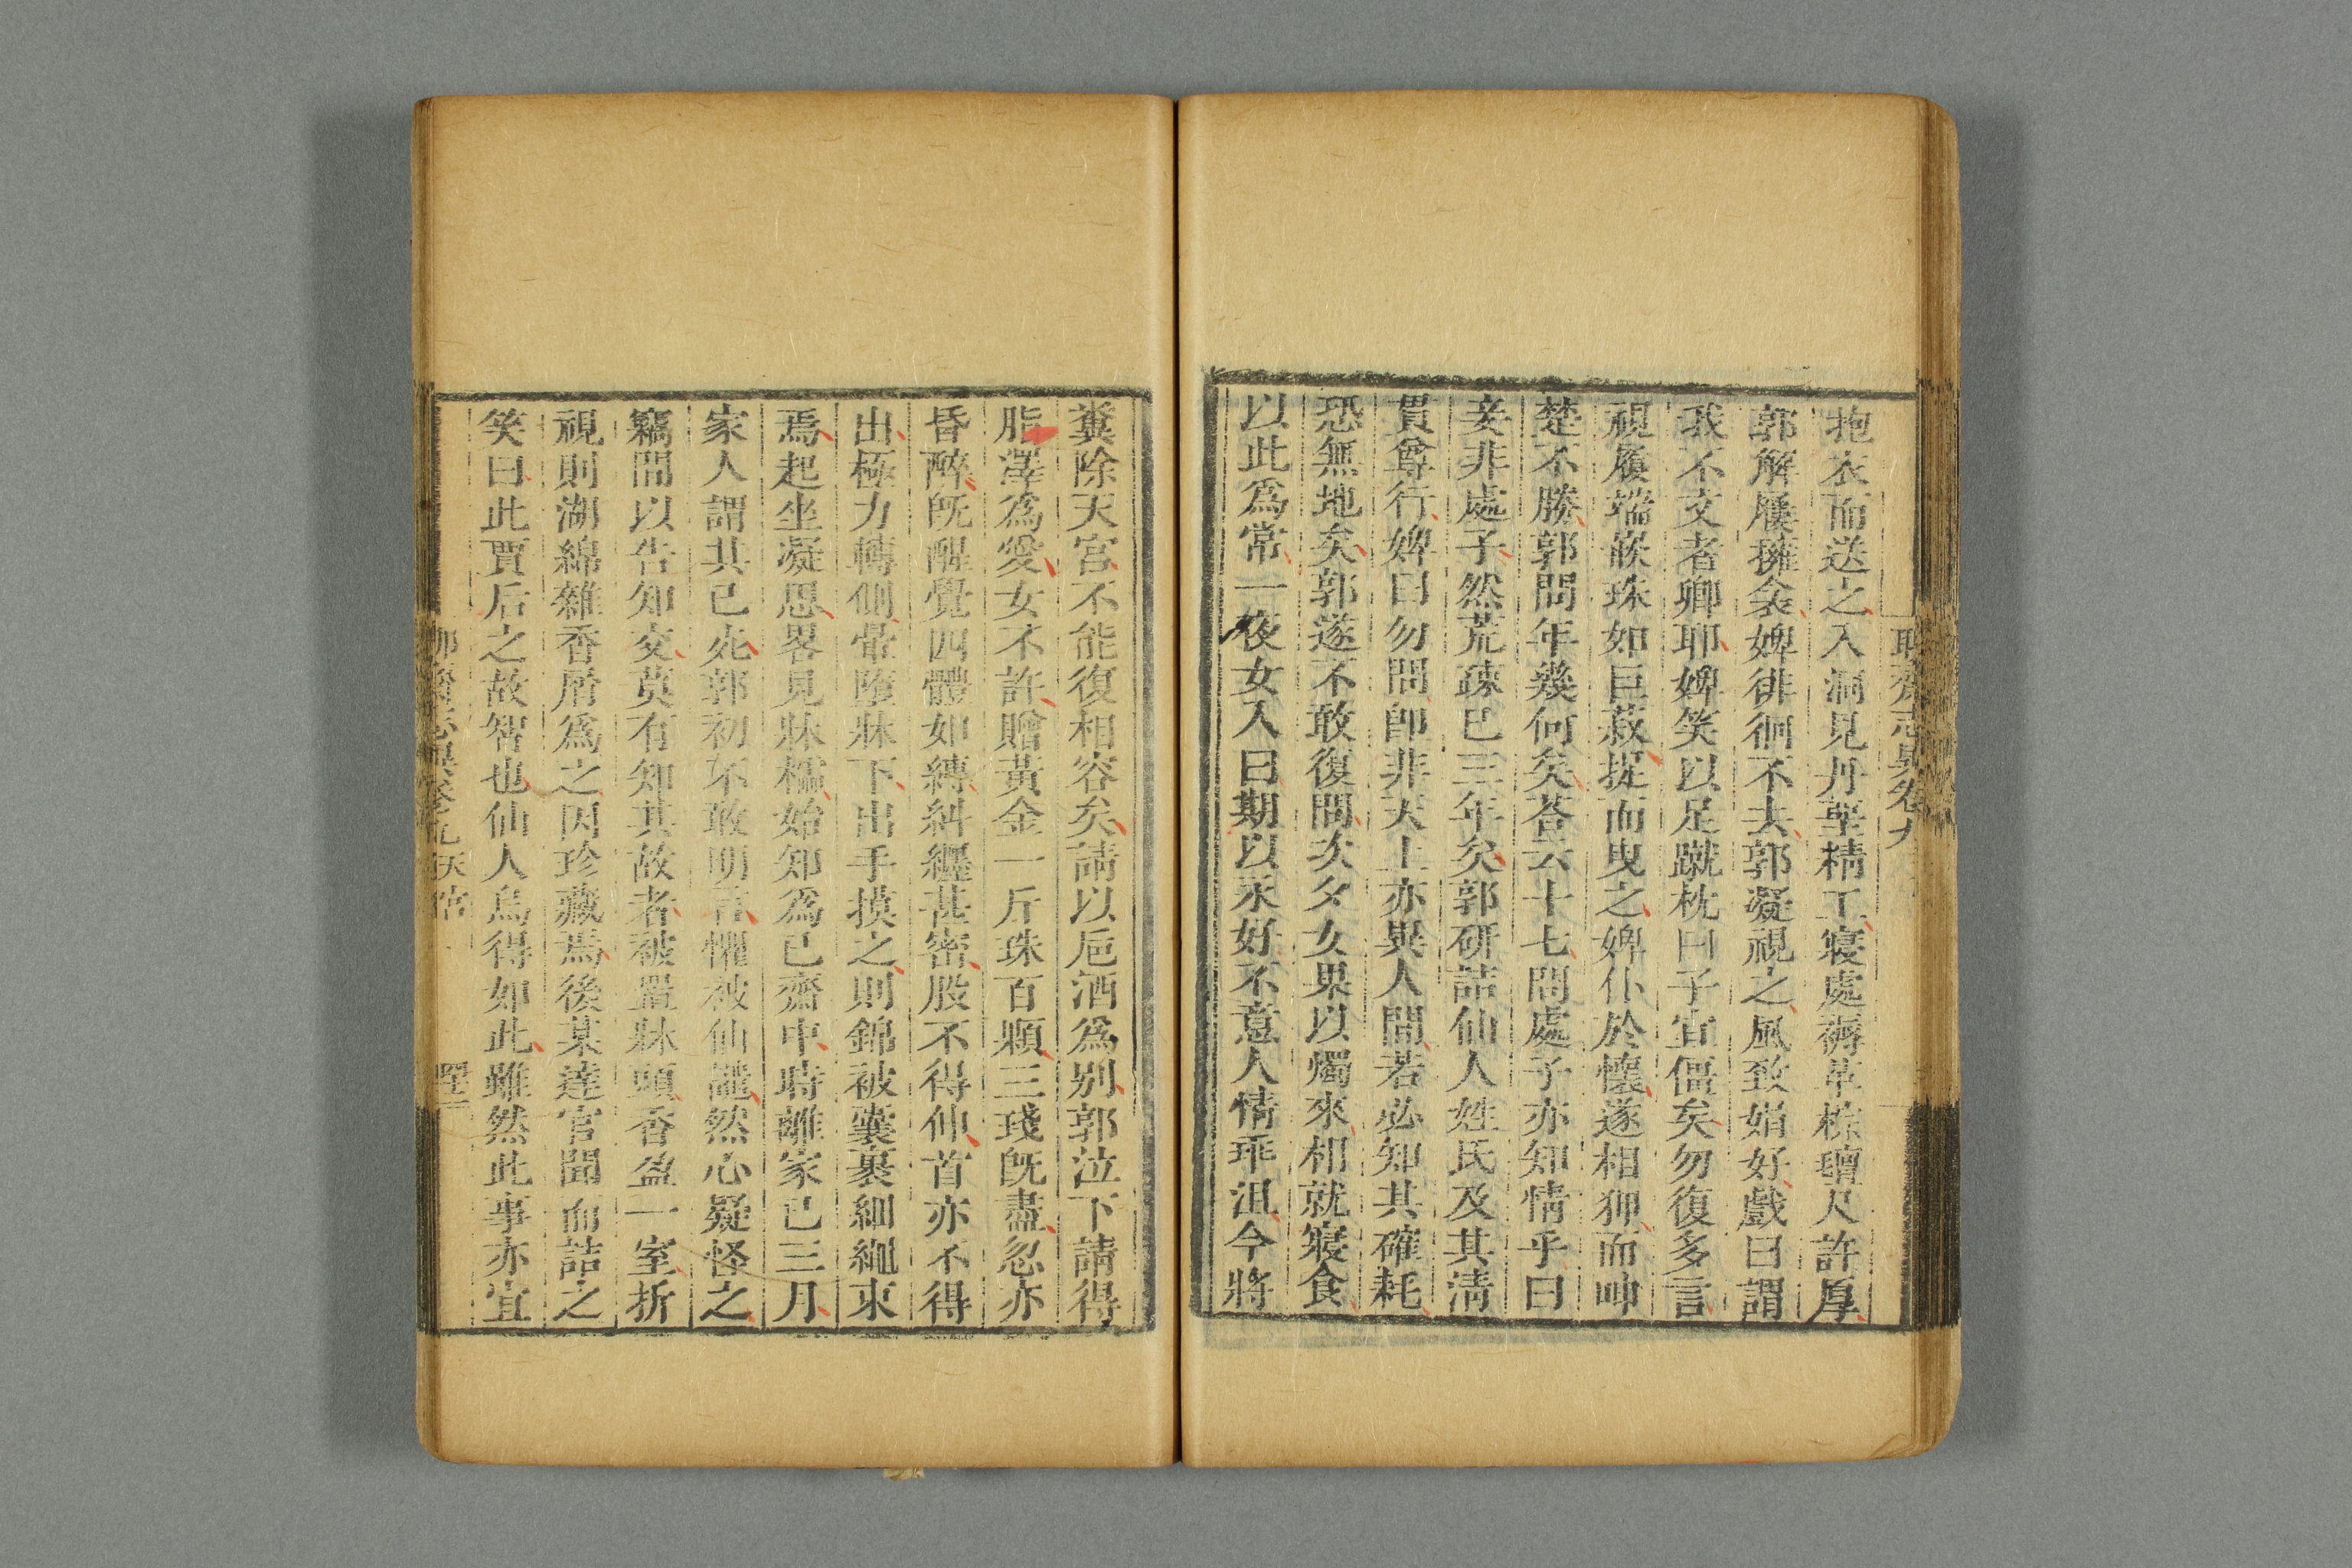 聊齋志異卷九
抱衣而送之入洞見丹堊精工寢處褥革棕氊尺許厚
郭解屨擁衾婢徘徊不去郭凝視之風致娟好戲曰謂
我不文者卿耶婢笑以足蹴枕曰子宜僵矣勿復多言
視履端嵌珠如巨菽捉而曳之婢仆於懷遂相狎而呻
楚不勝郭問年幾何矣荅云十七問處子亦知情乎曰
妾非處子然荒疎已三年矣郭研詰仙人姓氏及其淸
貫尊行婢曰勿問卽非天上亦異人間若必知其確耗
恐無地矣郭遂不敢復問次夕女果以燭來相就寢食
以此爲常一夜女入曰期以永好不意人情乖沮今將
糞除天宮不能復相容矣請以卮酒爲别郭泣下請得
脂澤爲愛女不許贈黃金一斤珠百顆三琖旣盡忽亦
昏醉旣醒覺四體如縛糾纏甚密股不得伸首亦不得
出極力轉側暈墮牀下出手摸之則錦被囊裹細繩束
焉起坐凝思畧見牀櫺始知爲己齋中時離家已三月
家人謂其已死郭初不敢明言懼被仙譴然心疑怪之
竊間以告知交莫有知其故者被置牀頭香盈一室折
視則湖綿雜香屑爲之因珍藏焉後某達官聞而詰之
笑曰此賈后之故智也仙人烏得如此雖然此事亦宜
聊齋志異卷九 天宮